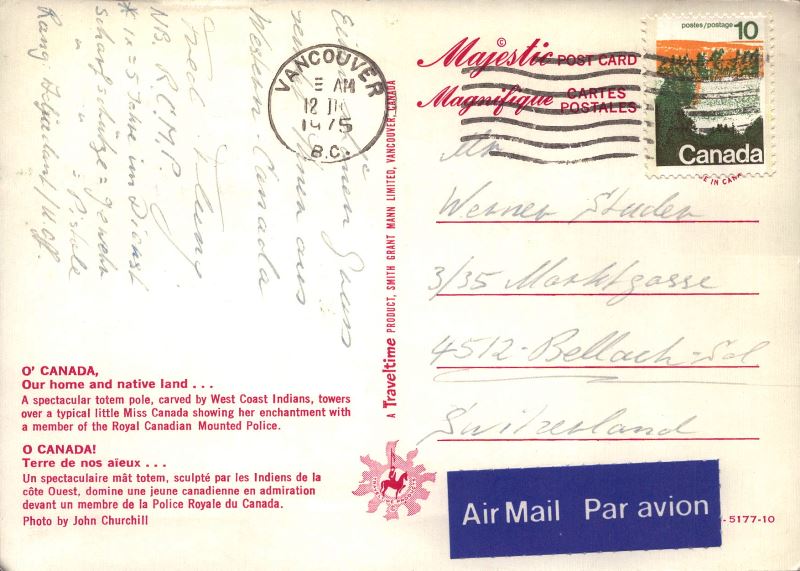 Einen
Gruss
aus
Western Canada
Fred
NB. R.C.M.P.
* 1x = 5 Jahre im Dienst
scharfschütze = gewehr
" " = Pistole
Rang:
O' CANADA,
Our home and native land . . .
A spectacular totem pole, carved by West Coast Indians, towers
over a typical little Miss Canada showing her enchantment with
a member of the Royal Canadian Mounted Police.
O CANADA!
Terre de nos aïeux . . .
Un spectaculaire mât totem, sculpté par les Indiens de la
côte Ouest, domine une jeune canadienne en admiration
devant un membre de la Police Royale du Canada.
Photo by John Churchill
VANCOUVER
AM
12
1975
B.C.
A Traveltime PRODUCT, SMITH GRANT MANN LIMITED, VANCOUVER, CANADA
© Majestic POST CARD
Magnifique CARTES
POSTALES
postes/postage 10
Canada
Mr
Werner Studer
3/35 Marktgasse
4512-Bellach-Sol
Switzerland
Air Mail Par avion
- 5177-10